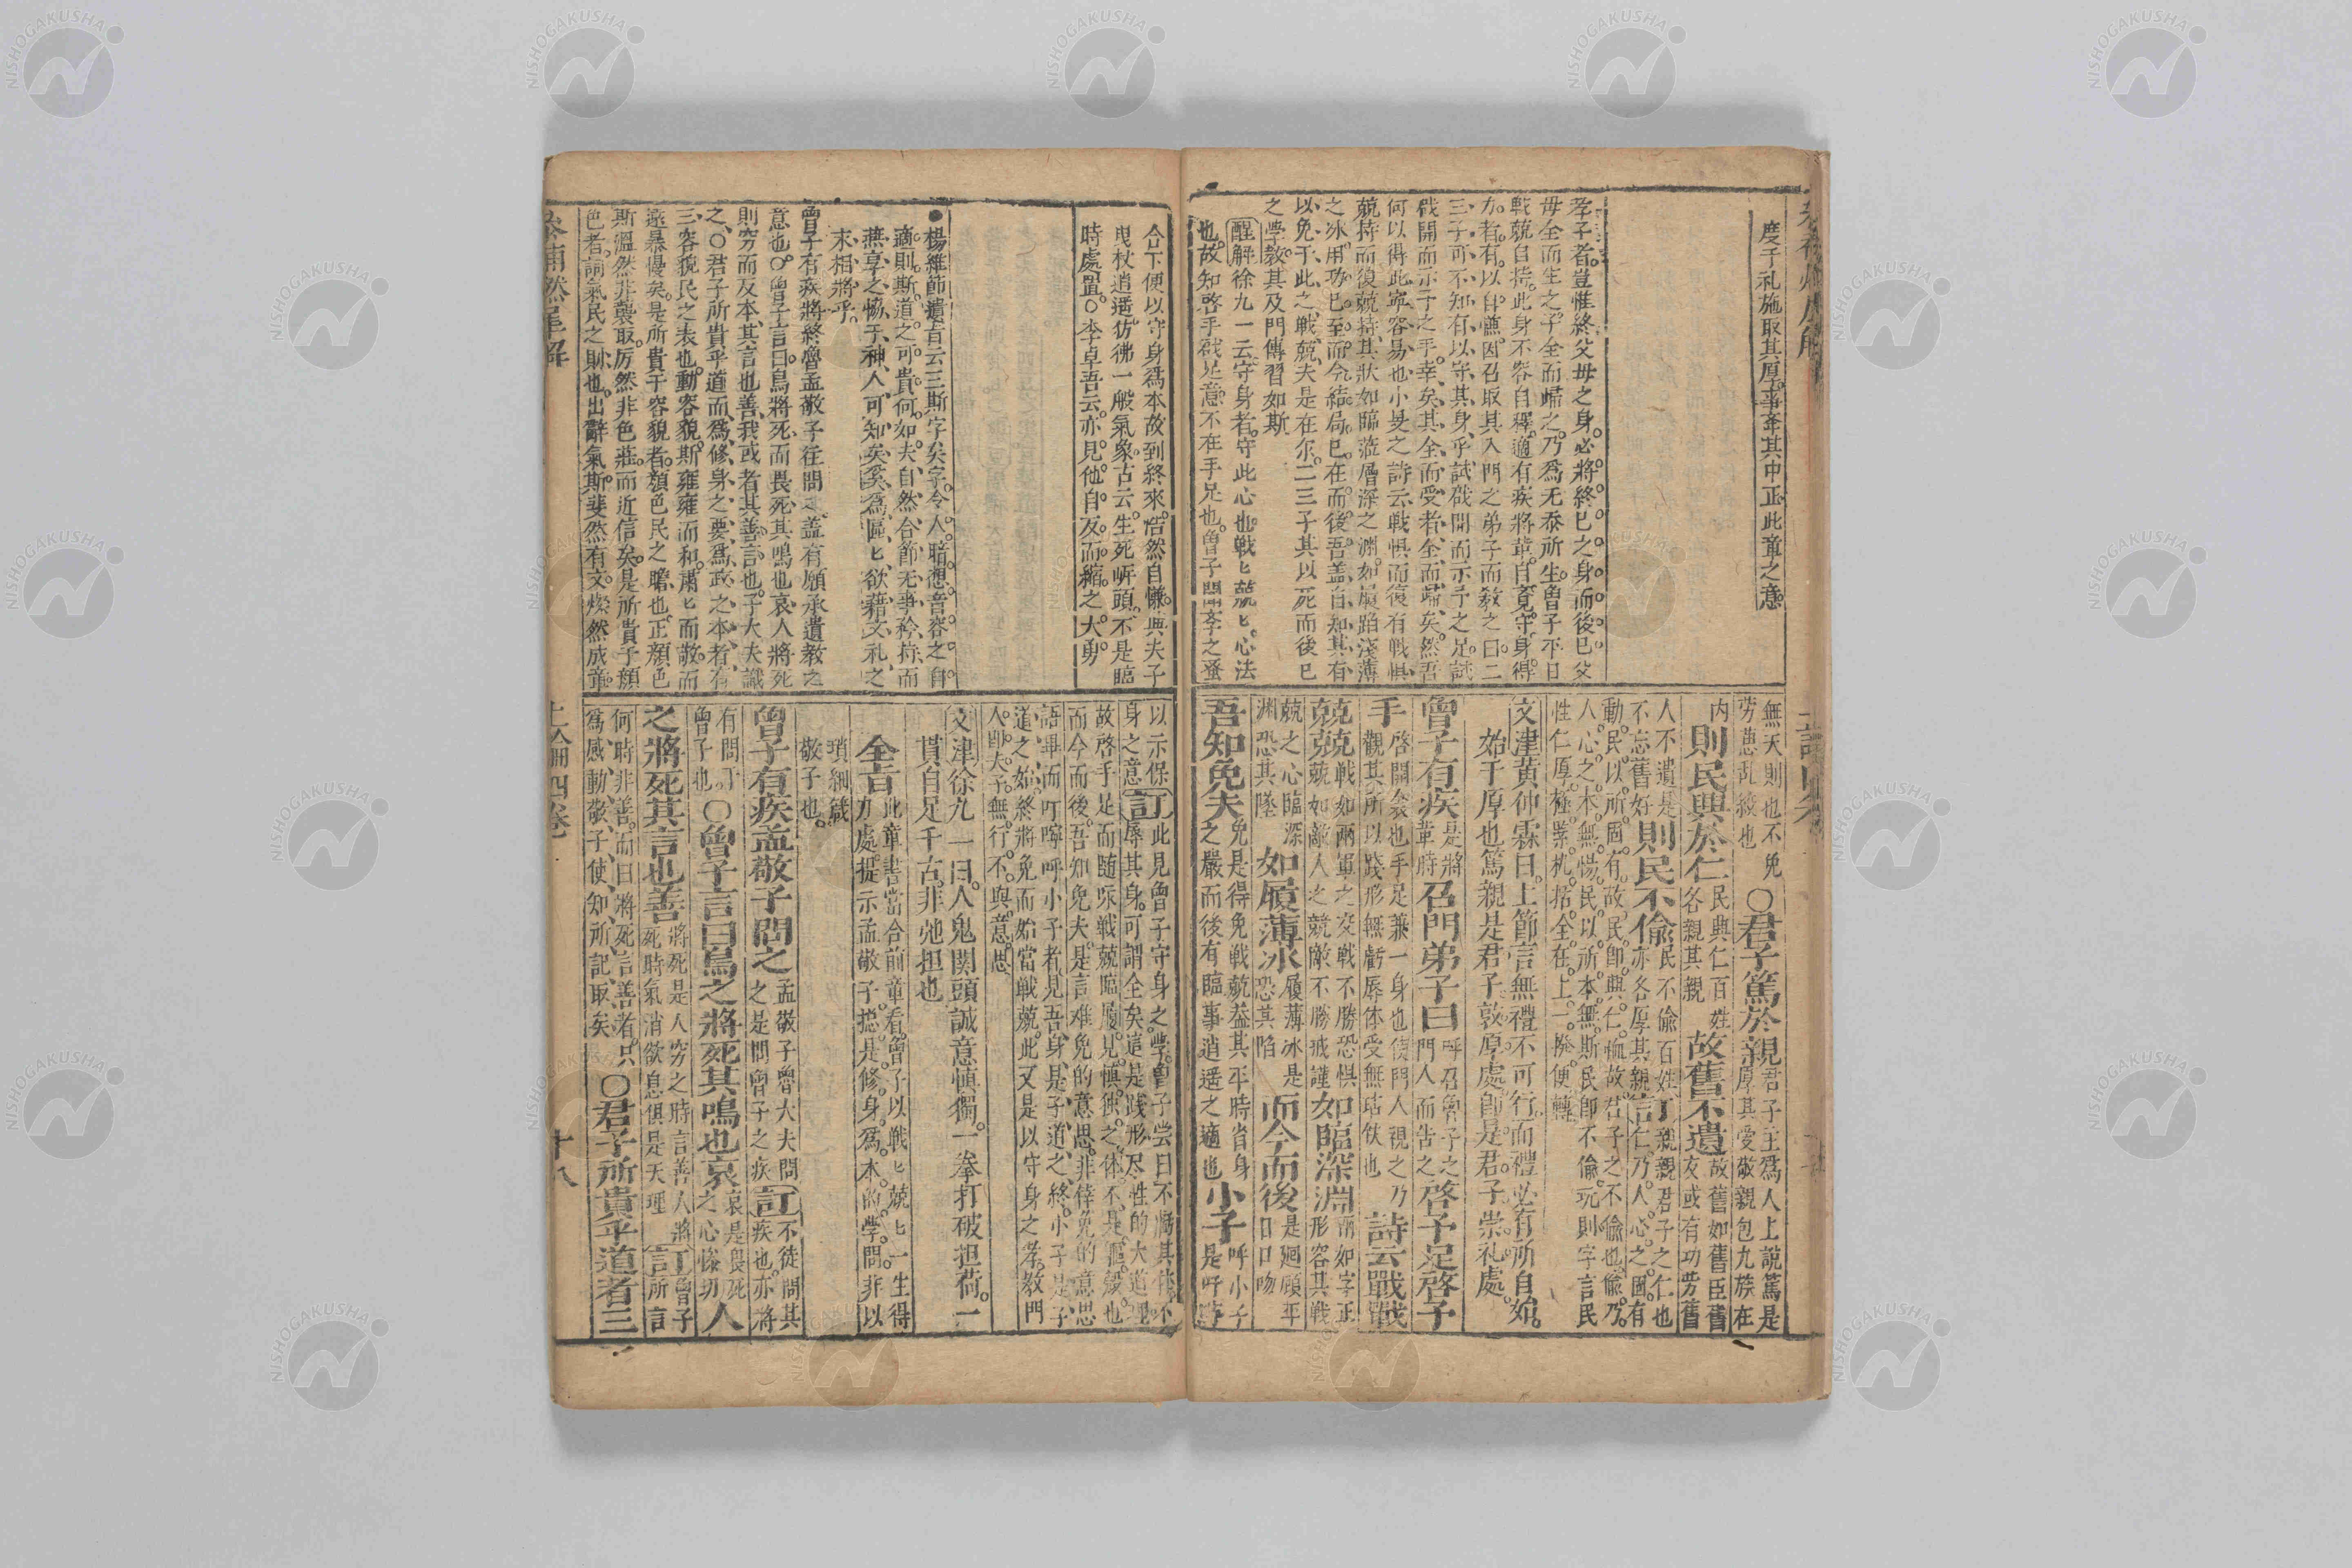 度于礼施取其厚事夲其中正此章之意
孝子者豈惟終父毋之身必將終巳之身而後巳父
毋全而生之子全而歸之乃爲无忝所生曾子平日
戰兢自持此身不容自釋適有疾將革自覔守身得
力者有以自慊因召取其入門之弟子而敎之曰二
三子可不知有以守其身乎試啟開而示予之足試
啟開而示予之手幸矣其全而受者全而歸矣然吾
何以得此寧容易也小旻之詩云戰惧而復有戰惧
兢持而復兢持其狀如臨蒞層深之渊如履蹈淺薄
之冰用功巳至而今結局巳在而後吾盖自知其有
以免于此之戰兢夫是在尔二三子其以死而後巳
之學敎其及門傳習如斯
醒解徐九一云守身者守此心也戰〻兢〻心法
也故知啓手啟足意不在手足也曾子問孝之蚤
無天則也不免
劳葸乱絞也
○君子篤於親
君子主爲人上說篤是
厚其愛敬親包九族在
内
則民興於仁
民興仁百姓
各親其親
故舊不遺
故舊如舊臣舊
友或有功劳舊
人不遺是
不忘舊好
則民不偷
民不偷百姓
亦各厚其親
訂
親親君子之仁也
仁乃人心之固有
動民以所固有故民卽興仁恤故君子之不偷也偷乃
人心之本無惕民以所本無斯民卽不偷玩則字言民
性仁厚極業机括全在上一撥便轉
文津黄仲霖曰上節言無禮不可行而禮必有所自始
始于厚也篤親是君子敦厚處卽是君子崇礼處
曾子有疾
是將
革時
召門弟子曰
呼召曾子之
門人而告之
啓予足啓予
手
啓開衾也手足兼一身也使門人視之乃
觀其所以踐形無虧辱体受無玷伏也
詩云戰戰
兢兢
戦如兩軍之交戰不勝恐惧
兢如敵人之競敵不勝戒謹
如臨深淵
兩如字正
形容其戦
兢之心臨深
渊恐其墜
如履薄冰
履薄冰是
恐其陷
而今而後
是廻顧年
日口吻
吾知免夫
免是得免戰兢益其平時省身
之嚴而後有臨事逍遥之適也
小子
呼小子
是呼等
合下便以守身爲本故到終來恬然自慊與夫子
曳杖逍遥彷彿一般氣象古云生死岍頭不是臨
時處置○李卓吾云亦見他自反而縮之大勇
●楊維節遺旨云三斯字矣字令人暗想音容之自
適則斯道之可貴何如夫自然合節无事矜持而
燕享之愉于神人可知矣奚爲區〻欲藉文礼之
末相將乎
曾子有疾將終魯孟敬子往問之盖有願承遺敎之
意也○曾子言曰鳥將死而畏死其鳴也哀人將死
則穷而反本其言也善我或者其善言也子大夫識
之○君子所貴乎道而爲修身之要爲政之本者有
三容貌民之表也動容貌斯雍雍而和肅〻而敬而
遠暴慢矣是所貴于容貌者顏色民之瞻也正顏色
斯溫然非襲取厉然非色莊而近信矣是所貴于顏
色者詞氣民之則也出辭氣斯斐然有文燦然成章
以示保
身之意
訂
此見曾子守身之學曾子尝曰不虧其体不
辱其身可謂全矣這是踐形尽性的大道理
故啓手足而随咏戦兢臨履見慎独之体不是軀殼也
而今而後吾知免夫是言难免的意思非倖免的意思
語畢而叮嚀呼小子者見吾身是子道之終小子是子
道之始終將免而始當戦兢此又是以守身之孝敎門
人卽夫子無行不與意思
文津徐九一曰人鬼関頭誠意慎獨一拳打破担荷一
貫自足千古非兠担也
全旨
此章書當合前章看曾子以戰〻兢〻一生得
力處提示孟敬子揔是修身爲本的學問非以
瑣細箴
敬子也
曾子有疾孟敬子問之
孟敬子魯大夫問
之是問曾子之疾
訂
不徒問其
疾也亦將
有問于
曾子也
○曾子言曰鳥之將死其鳴也哀
哀是畏死
之心惨切
人
之將死其言也善
將死是人穷之時言善人將
死時氣消欲息俱是天理
訂
曾子
所言
何時非善而曰將死言善者只
爲感動敬子使知所記取矣
○君子所貴乎道者三
上侖四卷
十八